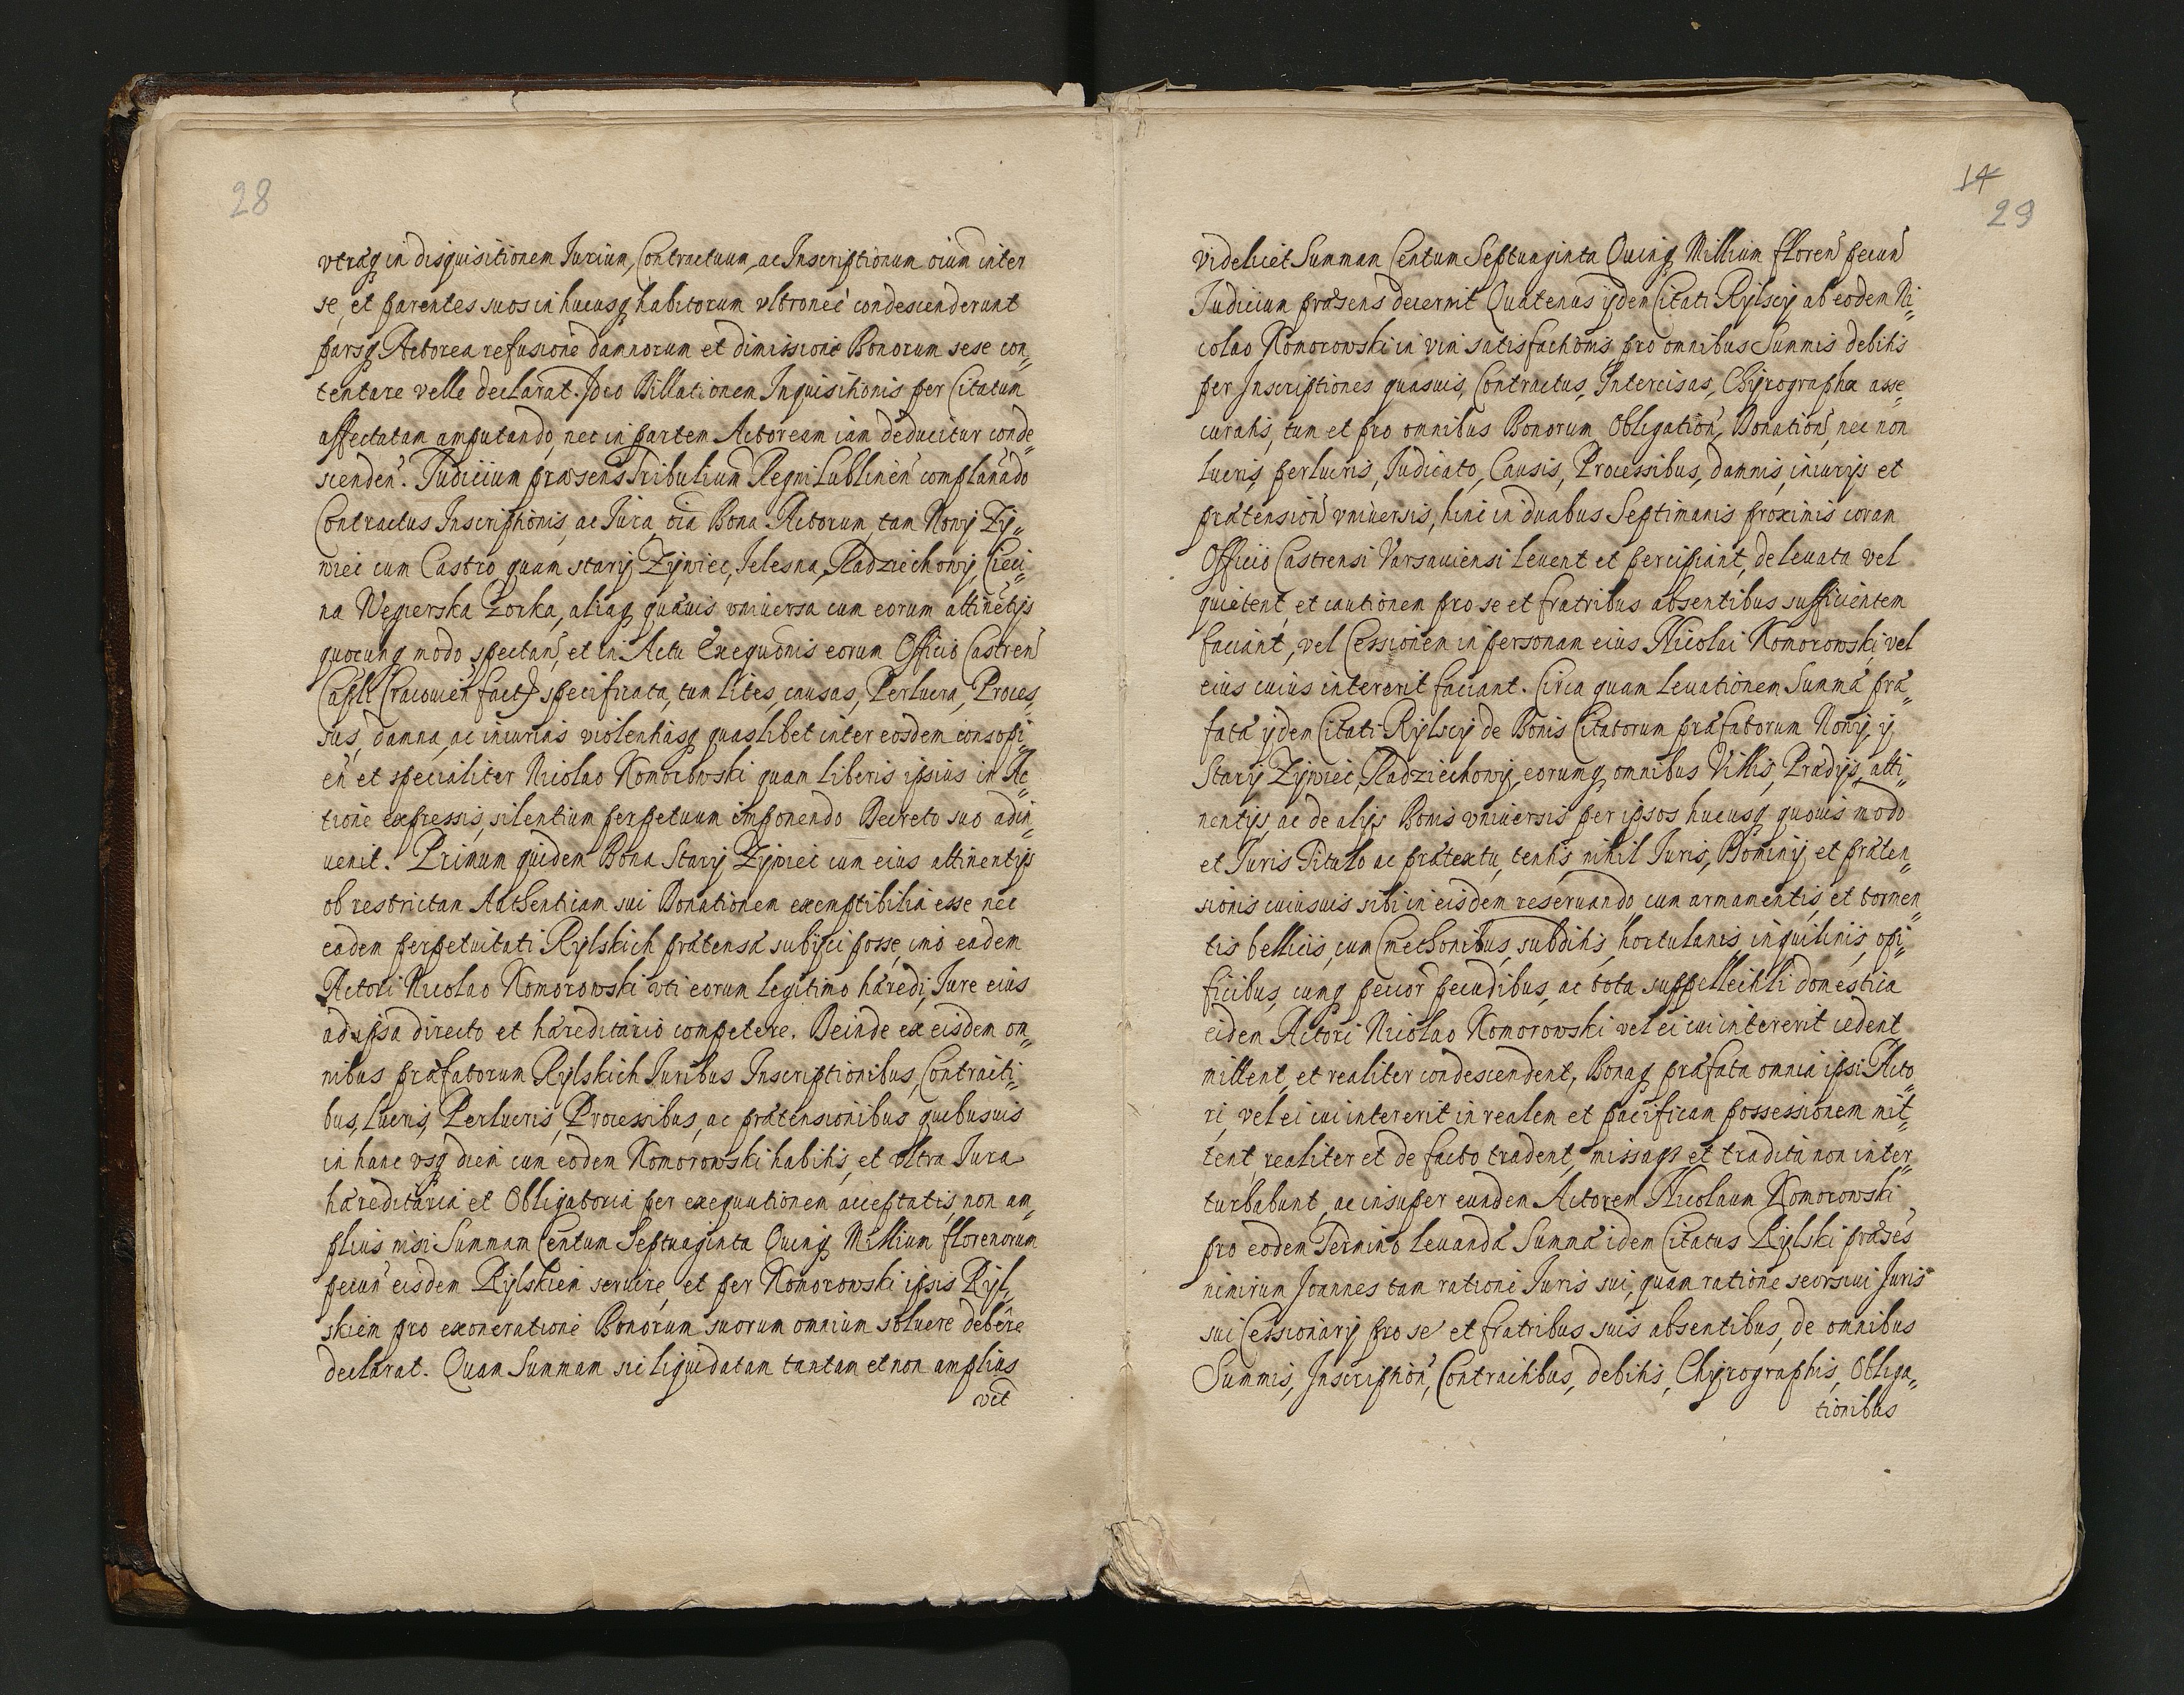 28
vtráq₃ in disquisitionem Jurium, Contractuum, ac Inscriptionum oium inter
se, et parentes suos in hucusq₃ habitorum vltroneé condescenderunt
parsq₃ Actorea refusione damnorum et dimissione Bonorum sese con„
tentare velle declarat. Ideo Dillationem Inquisitionis per Citatum
affectatam amputando, nec in partem Actoream iam deducitur conde„
scenden. Judicium præsens Tribulium Regni Lublinen complanãdo
Contractus Inscriptionis, ac Jura, oia Bona Actorum, tam Nowy Zy„
wiec cum Castro quam stary Zywiec, Jelesna, Radziechowy, Cieci„
na Wegierska Gorka, aliaq₃ quǽuis vniuersa cum eorum attinẽtijs
quocunq₃ modo spectan, et in Actu Exequonis eorum Officio Castren
Capli Cracouien fact specificata, tum lites, causas, Perlucra, Proces„
sus, damna, ac iniurias violentiasq₃ quaslibet inter eosdem consopi„
en et specialiter Nicolao Komorowski quam liberis ipsius in Ac„
tione expressis, silentium perpetuum imponendo Decreto suo adin„
uenit. Primum quidem Bona Stary Zywiec cum eius attinentijs
ob restrictam Authenticam sui Donationem exemptibilia esse nec
eadem perpetuitati Rylskich prætensæ subijci posse, imò eadem
Actori Nicolao Komorowski vti eorum legitimo hæredi, Jure eius
ad ipsa directo et hæreditario competere. Deinde ex eisdem om„
nibus præfatorum Rylskich Juribus Inscriptionibus, Contracti„
bus, Lucris, Perlucris, Processibus, ac prætensionibus quibusuis
in hanc vsq₃ diem cum eodem Komorowski habitis, et vltra Jura
hæreditaria et Obligatoria per exequutionem acceptatis, non am„
plius nisi Summam Centum Septuaginta Quinq₃ Millium florenorum
pecun eisdem Rylskiem seruire, et per Komorowski ipsis Ryl„
skiem pro exoneratione Bonorum suorum omnium soluere debere
declarat. Quam Summam sic liquidatam tantam et non amplius
vit
14
29
videlicet Summam Centum Septuaginta Quinq₃ Millium floren pecun
Judicium præsens decernit Quatenus ijdem Citati Rylscy ab eodem Ni„
colao Komorowski in vim satisfactionis pro omnibus Summis debitis
per Inscriptiones quasuis, Contractus, Intercisas, Chyrographa asse„
curatis, tum et pro omnibus Bonorum Obligation, Donation, nec non
lucris, perlucris, Judicato, Causis, Processibus, damnis, iniurijs et
prætension vniuersis, hinc in duabus Septimanis proximis coram
Officio Castrensi Varsauiensi leuent et percipiant, de leuata vel
quietent, et cautionem pro se et fratribus absentibus sufficientem
faciant, vel Cessionem in personam eius Nicolai Komorowski, vel
eius cuius intererit faciant. Circa quam leuationem Summæ præ„
fatæ ijdem Citati Rylscy de Bonis Citatorum præfatorum Nowy, y
Stary Zywiec, Radziechowy, eorumq₃ omnibus Villis, Prædijs, atti„
nentijs, ac de alijs Bonis vniuersis per ipsos hucusq₃ quouis modo
et Juris Titulo ac prætextu, tentis, nihil Juris, Dominij et præten„
sionis cuiusuis sibi in eisdem reseruando, cum armamentis, et tormen„
tis bellicis, cum Cmethonibus, subditis, hortulanis, inquilinis, opi„
ficibus, cumq₃ pecor pecudibus, ac tota suppellectili domestica
eidem Actori Nicolao Komorowski vel ei cui intererit cedent,
mittent, et realiter condescendent, Bonaq₃ præfata omnia ipsi Acto„
ri, vel ei cui intererit in realem et pacificam possessionem mit„
tent, realiter et de facto tradent, missaq₃ et tradita non inter„
turbabunt, ac insuper eundem Actorem Nicolaum Komorowski
pro eodem Termino leuandæ Summæ idem Citatus Rylski præsẽs
nimirum Joannes tam ratione Juris sui, quam ratione seorsiui Juris
sui Cessionarij pro se et fratribus suis absentibus, de omnibus
Summis, Inscription, Contractibus, debitis, Chyrographis, Obliga„
tionibus